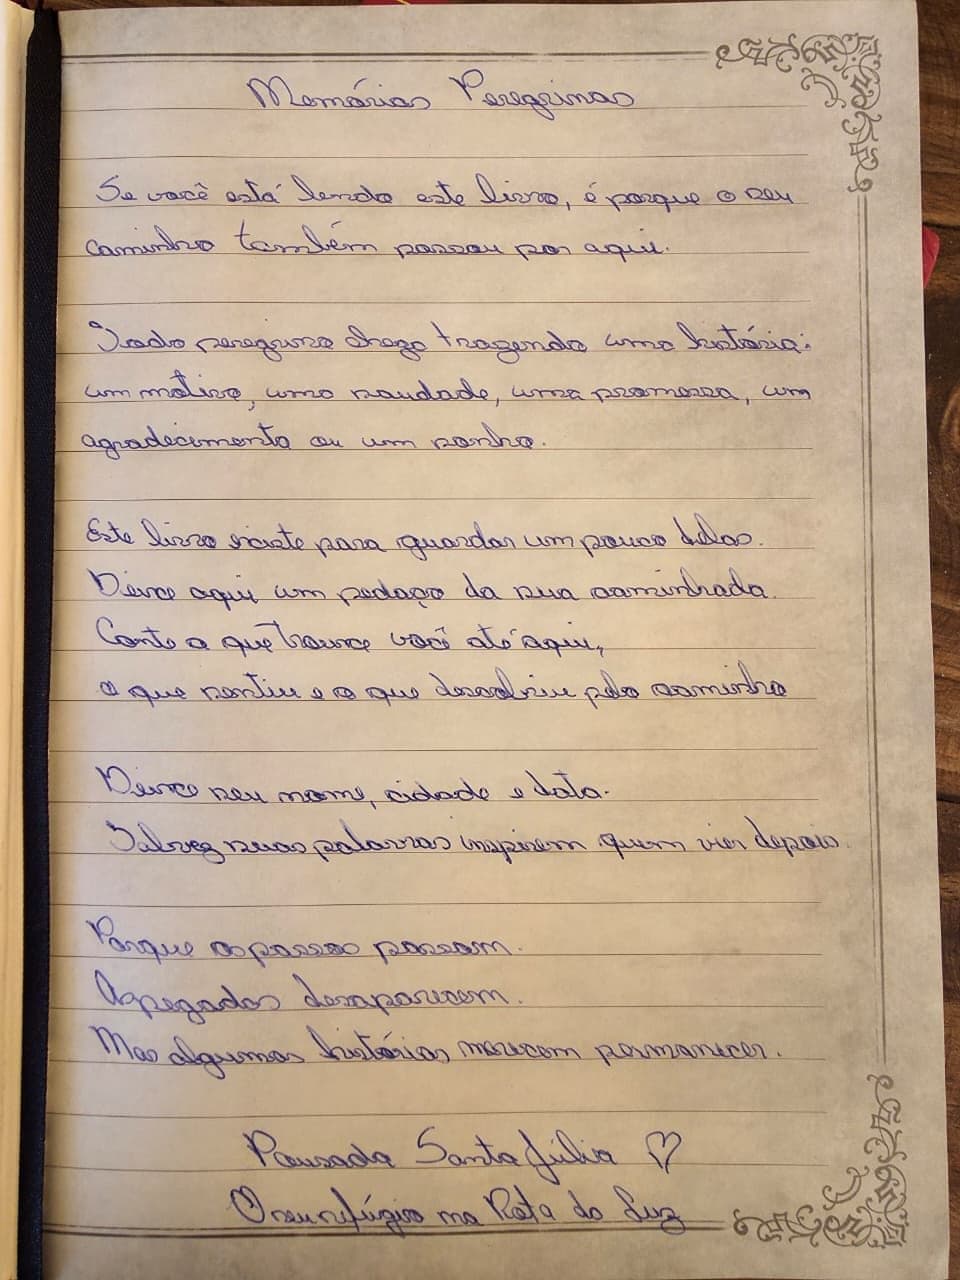 Memórias Peregrinas
Se você está lendo este livro, é porque o seu
caminho também passou por aqui.
Todo peregrino chega trazendo uma história:
um motivo, uma saudade, uma promessa, um
agradecimento ou um sonho.
Este livro existe para guardar um pouco delas.
Deixe aqui um pedaço da sua caminhada.
Conte o que trouxe você até aqui,
o que sentiu e o que descobriu pelo caminho
Deixe seu nome, cidade e data.
Talvez suas palavras inspirem quem vier depois.
Porque os passos passam.
As pegadas desaparecem.
Mas algumas histórias merecem permanecer.
Pousada Santa Júlia ♡
O seu refúgio na Rota da Luz